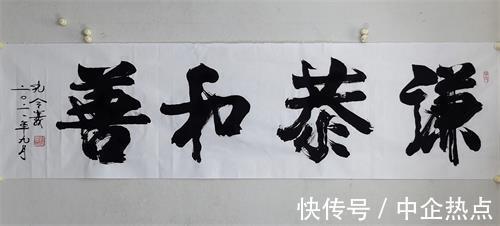 谦恭和善
二〇二一年九月
快传号 / 中企热点